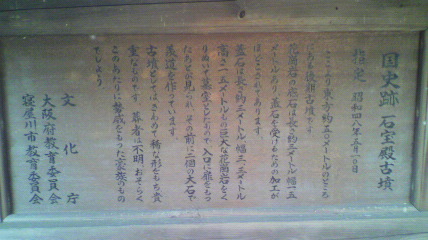 国史跡 石宝殿古墳
指定 昭和四八年五月一〇日
ここより東方約五〇メートルのところ
にある後期古墳です。
花崗岩の底石は長さ約三メートル幅一・五
メートルあり、蓋石を受けるための加工が
ほどこされてあります。
蓋石は長さ約三メートル幅三・三メートル
高さ一・五メートルもの巨大な花崗岩をく
りぬいて墓室としたもので入口に扉をもつ
たあとが見られ、その前に二個の大石で
羨道を作っています。
古墳としてはきわめて稀な形をもち貴
重なものです。葬者は不明、おそらく
このあたりに勢威をもった豪族のもの
でしょう
文化庁
大阪府教育委員会
寝屋川市教育委員会